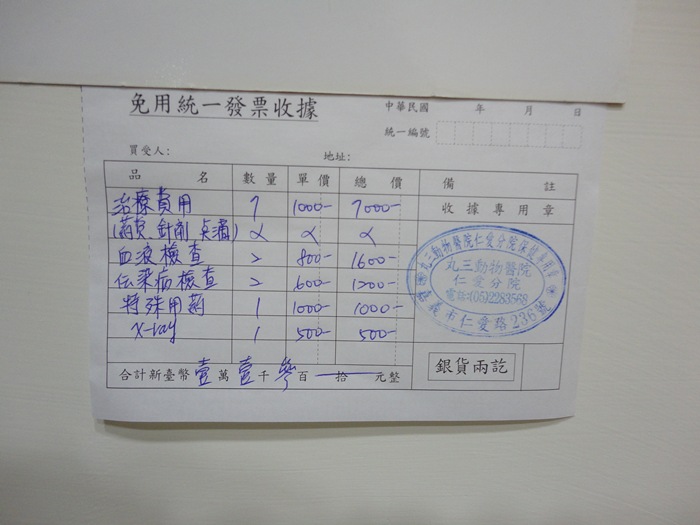 免用統一發票收據
中華民國 年 月 日
統一編號
買受人: 地址:
品 名 數量 單價 總價 備 註
治療費用 7 1000- 7000- 收據專用章
(藥費、針劑、点滴) α α α
血液檢查 2 800- 1600-
伝染病檢查 2 600- 1200-
特殊用药 1 1000- 1000-
X-ray 1 500- 500-
丸三動物醫院
仁愛分院
電話:(05)2283568
嘉義市仁愛路236號
銀貨兩訖
合計新臺幣壹萬壹千參百 拾 元整